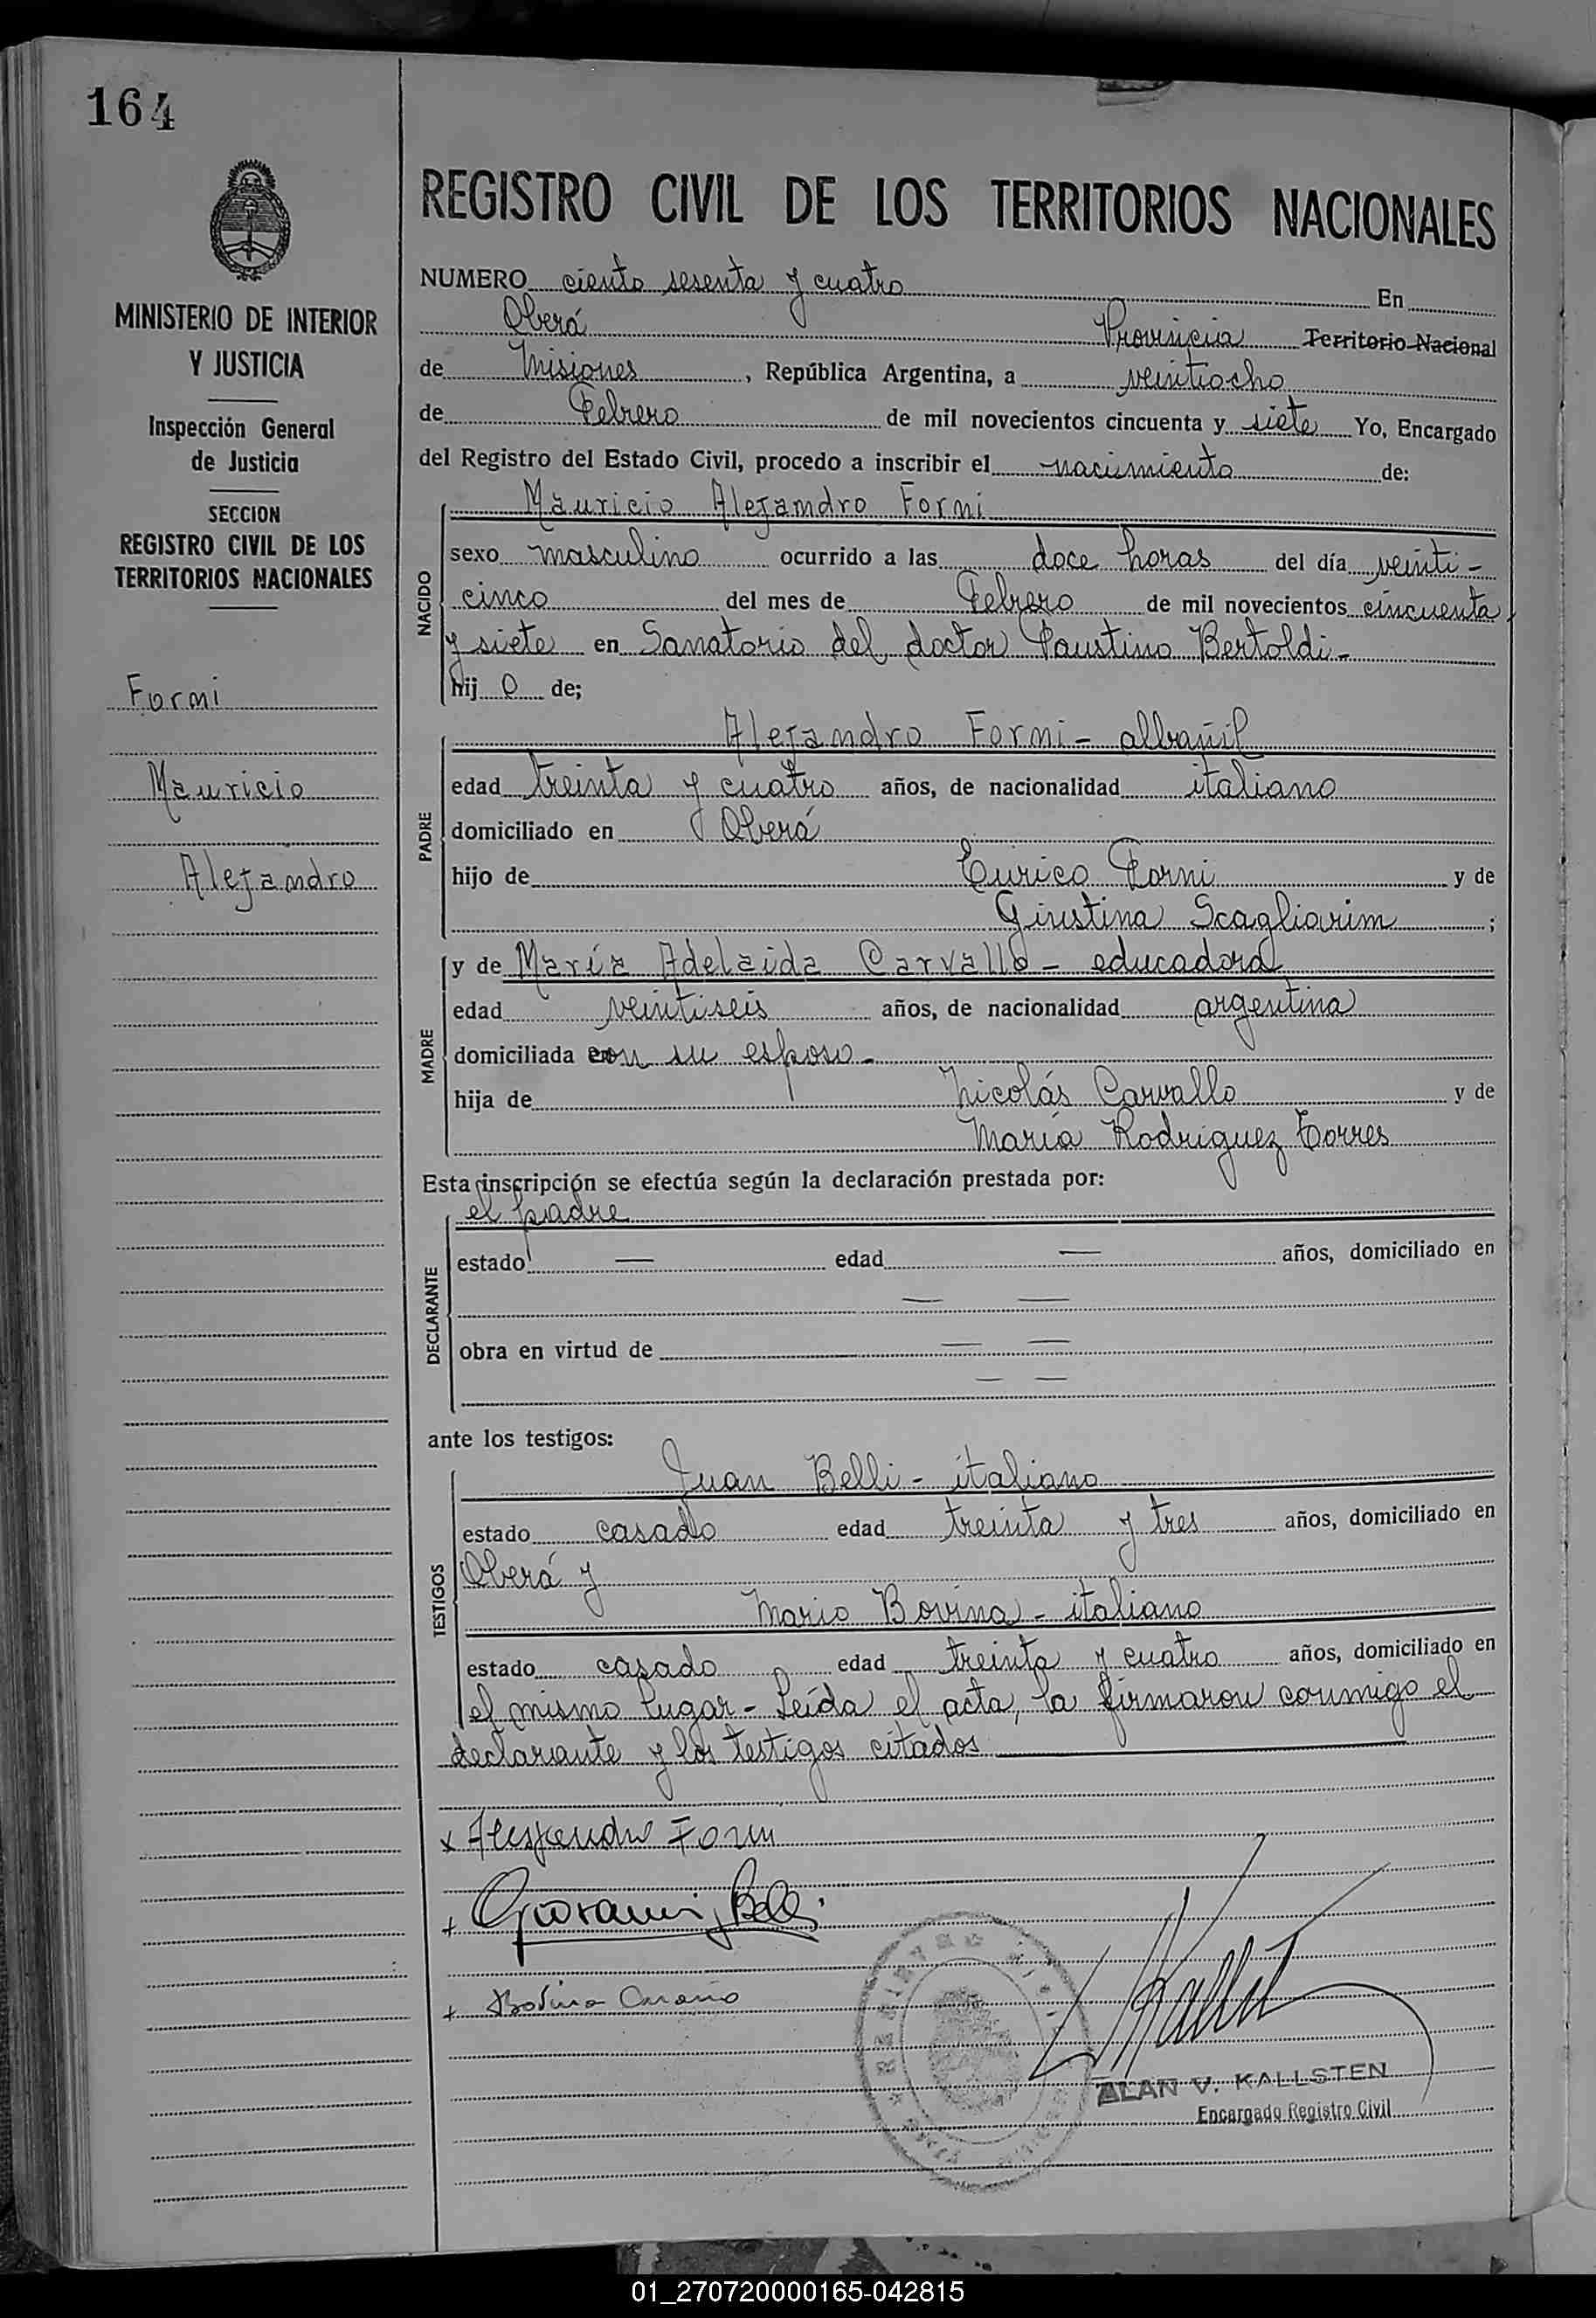 164
MINISTERIO DE INTERIOR
Y JUSTICIA
Inspección General
de Justicia
SECCION
REGISTRO CIVIL DE LOS
TERRITORIOS NACIONALES
Forni
Mauricio
Alejandro
REGISTRO CIVIL DE LOS TERRITORIOS NACIONALES
NUMERO ciento sesenta y cuatro En
Oberá Provincia Territorio Nacional
de Misiones, República Argentina, a veintiocho
de Febrero de mil novecientos cincuenta y siete Yo, Encargado
del Registro del Estado Civil, procedo a inscribir el nacimiento de:
NACIDO
Mauricio Alejandro Forni
sexo masculino ocurrido a las doce horas del día veinti-
cinco del mes de Febrero de mil novecientos cincuenta
y siete en Sanatorio del doctor Faustino Bertoldi-
hijo de;
PADRE
Alejandro Forni - albañil
edad treinta y cuatro años, de nacionalidad italiano
domiciliado en Oberá
hijo de Enrico Forni y de
Giustina Scagliarini;
MADRE
y de María Adelaida Carvallo - educadora
edad veintiseis años, de nacionalidad argentina
domiciliada con su esposo-
hija de Nicolás Carvallo y de
María Rodriguez Torres
Esta inscripción se efectúa según la declaración prestada por:
DECLARANTE
el padre
estado — edad — años, domiciliado en
— —
obra en virtud de — —
— —
ante los testigos:
TESTIGOS
Juan Belli - italiano
estado casado edad treinta y tres años, domiciliado en
Oberá y
Mario Bovina - italiano
estado casado edad treinta y cuatro años, domiciliado en
el mismo lugar - Leída el acta, la firmaron conmigo el
declarante y los testigos citados
x Alejandro Forni
+ Giovanni Belli
+ Bovina Mario
REGISTRO CIVIL
ALAN V. KALLSTEN
Encargado Registro Civil
01_270720000165-042815